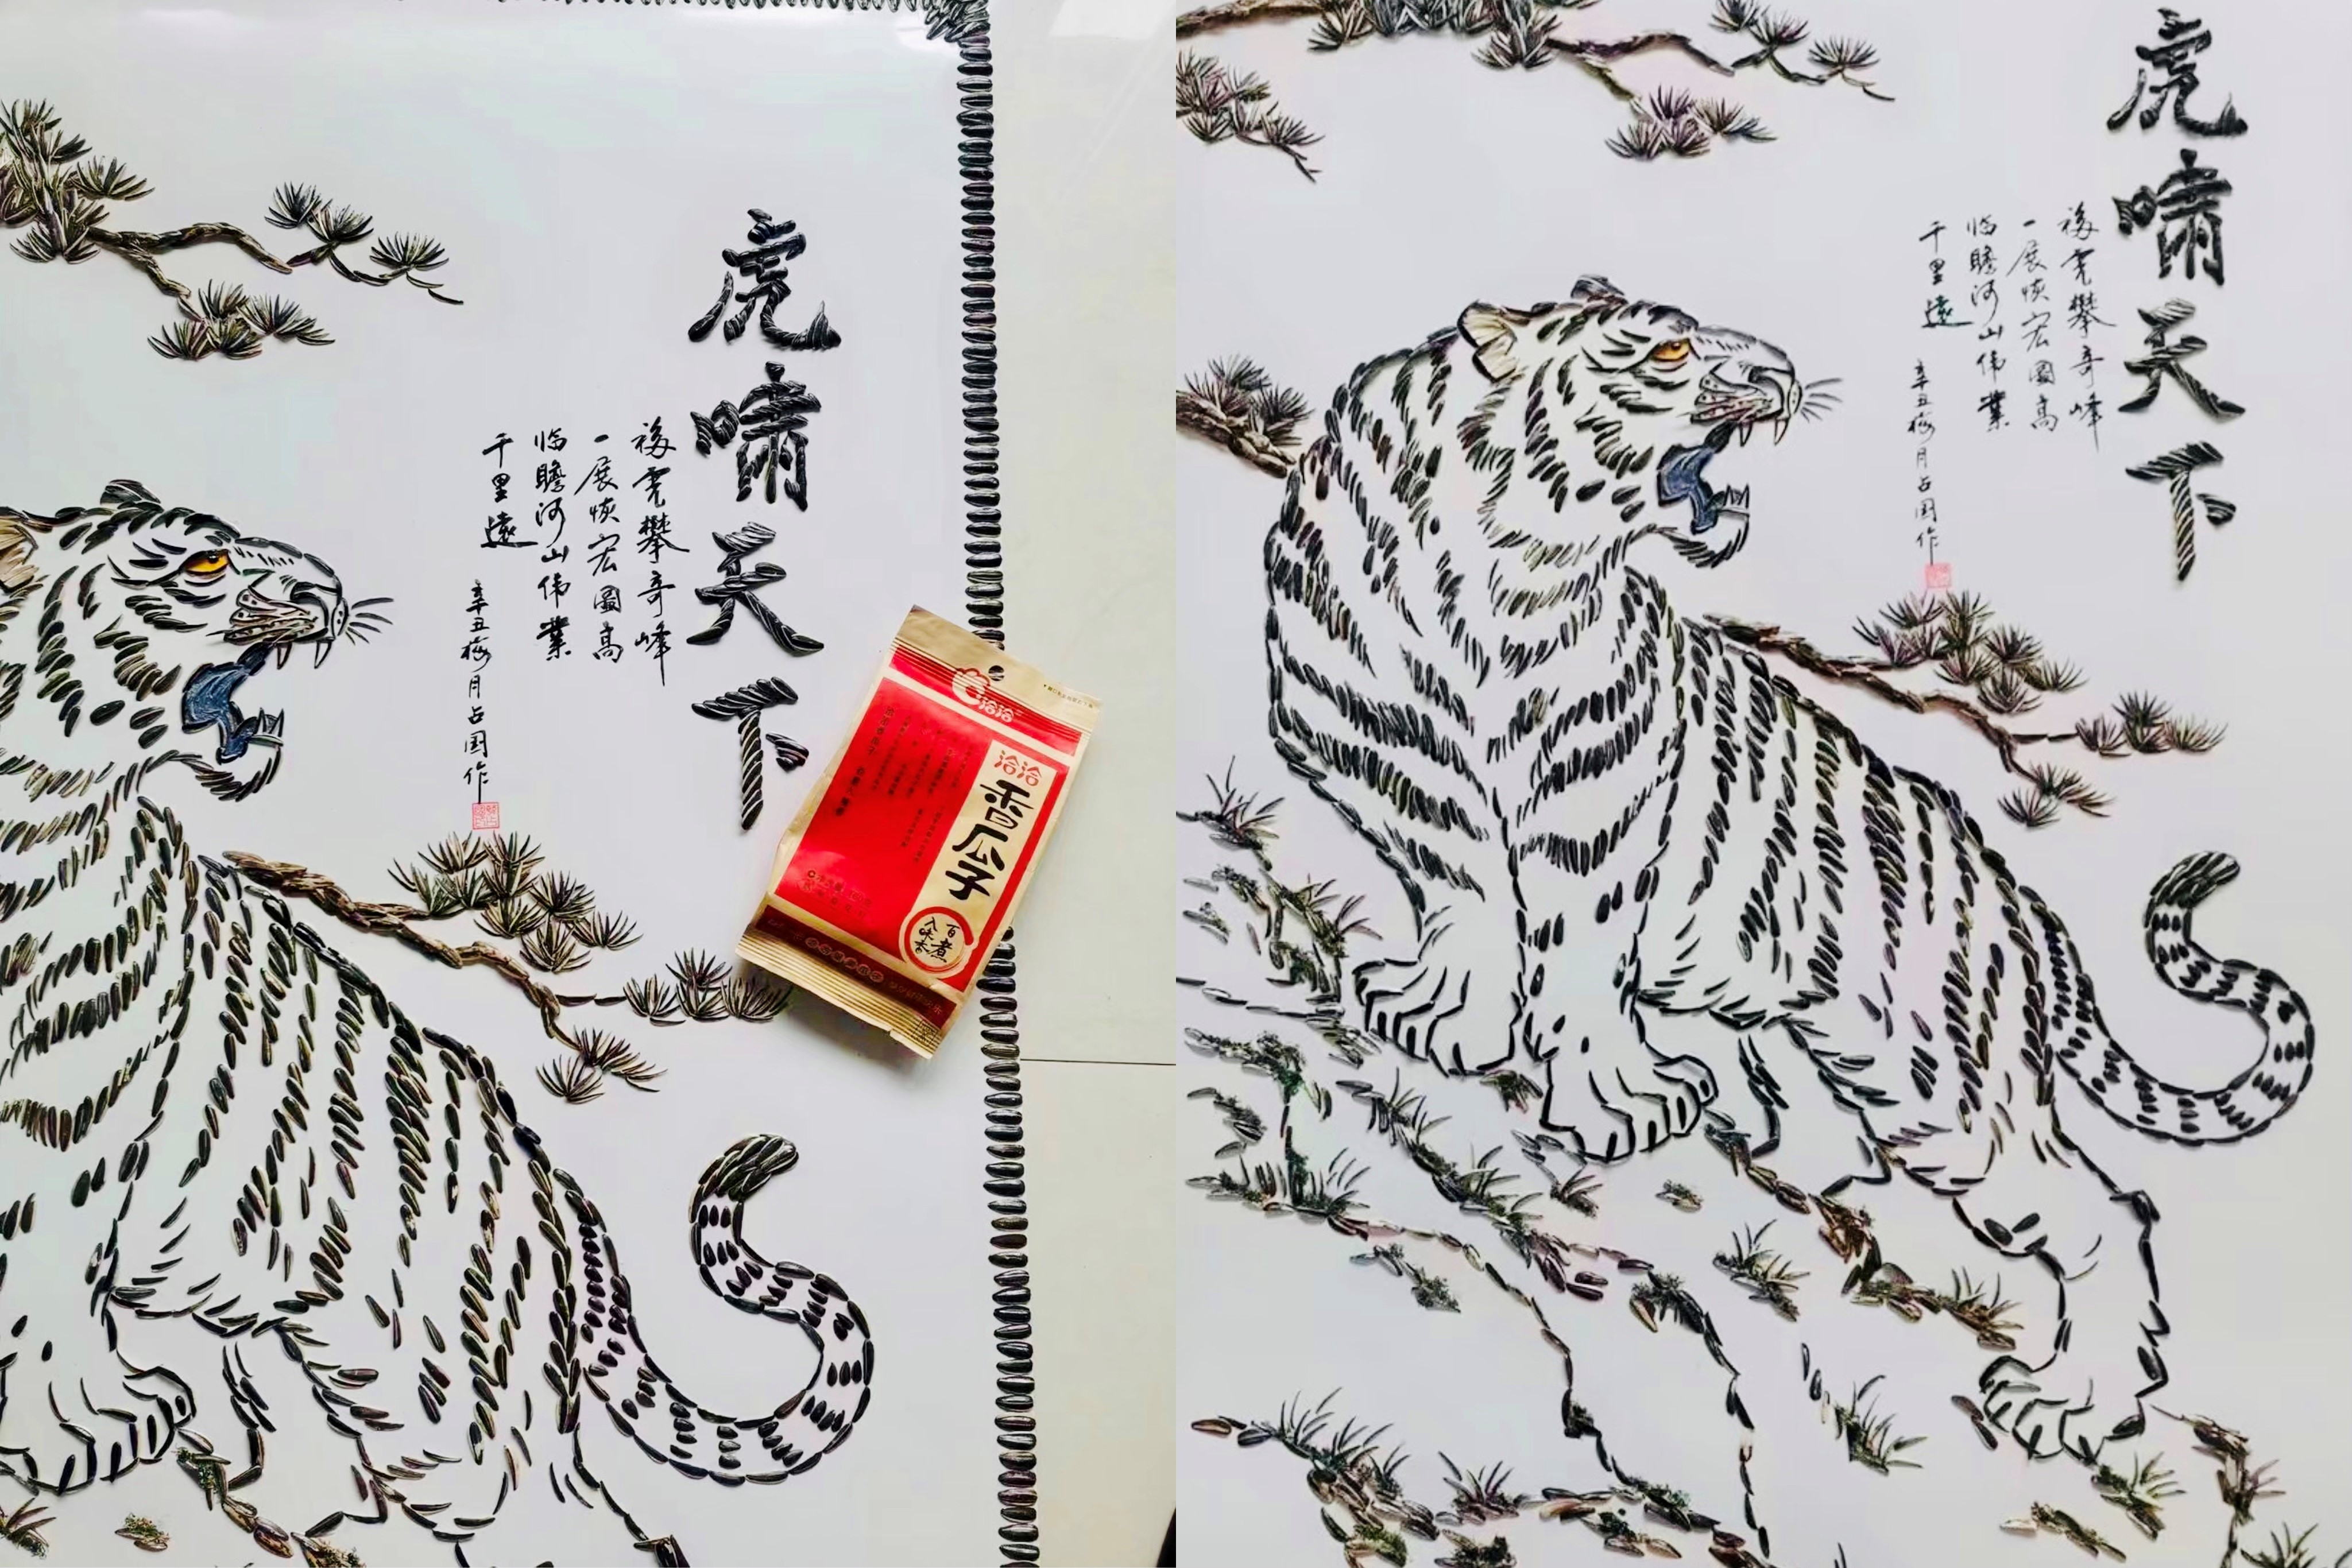 虎啸天下
後虎攀奇峰
一展恢宏圖高
临瞻河山伟業
千里遠
辛丑梅月占国作
洽洽
洽洽
香瓜子
百煮
入味香
虎啸天下
後虎攀奇峰
一展恢宏圖高
临瞻河山伟業
千里遠
辛丑梅月占国作